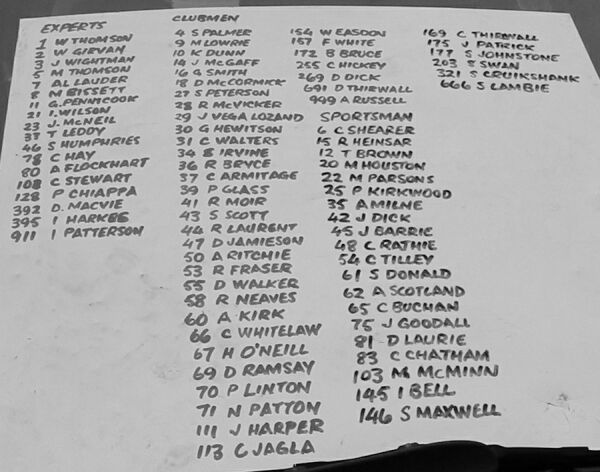 EXPERTS
1 W THOMSON
2 W GIRVAN
3 J WIGHTMAN
5 M THOMSON
7 AL LAUDER
8 M BISSETT
11 G. PENNICOOK
21 I. WILSON
23 J. McNEIL
33 T LEDDY
46 S HUMPHRIES
78 C HAY
80 A FLOCKHART
108 C STEWART
128 P CHIAPPA
392 D. MACVIE
395 I HARKES
911 I PATTERSON
CLUBMEN
4 S PALMER
9 M LOWRIE
10 K DUNN
14 J McGAFF
16 G SMITH
18 D McCORMICK
27 S PETERSON
28 R McVICKER
29 J VEGA LOZANO
30 G HEWITSON
31 C WALTERS
34 B IRVINE
36 R BRYCE
37 C ARMITAGE
39 P GLASS
41 R MOIR
43 S SCOTT
44 R LAURENT
47 D JAMIESON
50 A RITCHIE
53 R FRASER
55 D WALKER
58 R NEAVES
60 A KIRK
66 C WHITELAW
67 H O'NEILL
69 D RAMSAY
70 P LINTON
71 N PATTON
111 J HARPER
113 C JAGLA
154 W EASDON
157 F WHITE
172 B BRUCE
255 C HICKEY
269 D DICK
691 D THIRWALL
999 A RUSSELL
SPORTSMAN
6 C SHEARER
15 R HEINSAR
12 T BROWN
20 M HOUSTON
22 M PARSONS
25 P KIRKWOOD
35 A MILNE
42 J DICK
45 J BARRIE
48 C RATHIE
54 C TILLEY
61 S DONALD
62 A SCOTLAND
65 C BUCHAN
75 J GOODALL
81 D LAURIE
83 C CHATHAM
103 M McMINN
145 I BELL
146 S MAXWELL
169 C THIRWALL
175 J PATRICK
177 S JOHNSTONE
203 B SWAN
321 S CRUIKSHANK
666 S LAMBIE